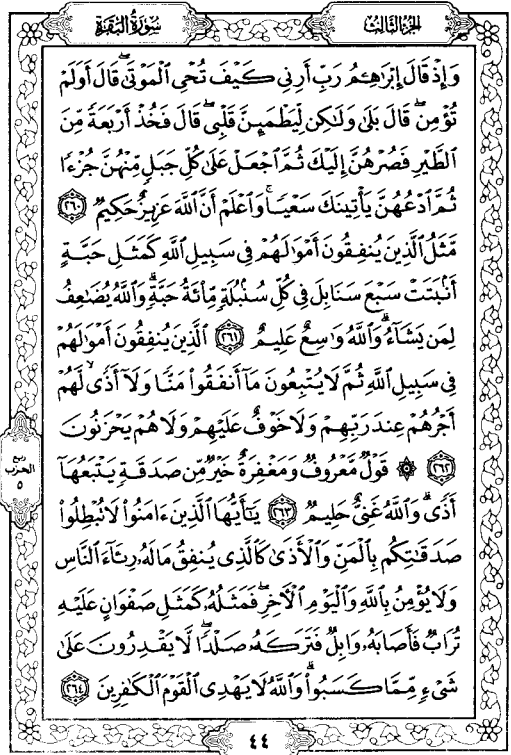 الجزء الثالث
سورة البقرة
وَإِذْ قَالَ إِبْرَاهِـۧمُ رَبِّ أَرِنِى كَيْفَ تُحْىِ الْمَوْتَىٰ ۖ قَالَ أَوَلَمْ
تُؤْمِن ۖ قَالَ بَلَىٰ وَلَٰكِن لِّيَطْمَئِنَّ قَلْبِى ۖ قَالَ فَخُذْ أَرْبَعَةً مِّنَ
الطَّيْرِ فَصُرْهُنَّ إِلَيْكَ ثُمَّ اجْعَلْ عَلَىٰ كُلِّ جَبَلٍ مِّنْهُنَّ جُزْءًا
ثُمَّ ادْعُهُنَّ يَأْتِينَكَ سَعْيًا ۚ وَاعْلَمْ أَنَّ اللَّهَ عَزِيزٌ حَكِيمٌ ٢٦٠
مَّثَلُ الَّذِينَ يُنفِقُونَ أَمْوَٰلَهُمْ فِى سَبِيلِ اللَّهِ كَمَثَلِ حَبَّةٍ
أَنۢبَتَتْ سَبْعَ سَنَابِلَ فِى كُلِّ سُنۢبُلَةٍ مِّائَةُ حَبَّةٍ ۗ وَاللَّهُ يُضَٰعِفُ
لِمَن يَشَآءُ ۗ وَاللَّهُ وَٰسِعٌ عَلِيمٌ ٢٦١ الَّذِينَ يُنفِقُونَ أَمْوَٰلَهُمْ
فِى سَبِيلِ اللَّهِ ثُمَّ لَا يُتْبِعُونَ مَآ أَنفَقُوا مَنًّا وَلَآ أَذًى ۙ لَّهُمْ
أَجْرُهُمْ عِندَ رَبِّهِمْ وَلَا خَوْفٌ عَلَيْهِمْ وَلَا هُمْ يَحْزَنُونَ
٢٦٢ ۞ قَوْلٌ مَّعْرُوفٌ وَمَغْفِرَةٌ خَيْرٌ مِّن صَدَقَةٍ يَتْبَعُهَآ
أَذًى ۗ وَاللَّهُ غَنِىٌّ حَلِيمٌ ٢٦٣ يَٰٓأَيُّهَا الَّذِينَ ءَامَنُوا لَا تُبْطِلُوا
صَدَقَٰتِكُم بِالْمَنِّ وَالْأَذَىٰ كَالَّذِى يُنفِقُ مَالَهُۥ رِئَآءَ النَّاسِ
وَلَا يُؤْمِنُ بِاللَّهِ وَالْيَوْمِ الْءَاخِرِ ۖ فَمَثَلُهُۥ كَمَثَلِ صَفْوَانٍ عَلَيْهِ
تُرَابٌ فَأَصَابَهُۥ وَابِلٌ فَتَرَكَهُۥ صَلْدًا ۖ لَّا يَقْدِرُونَ عَلَىٰ
شَىْءٍ مِّمَّا كَسَبُوا ۗ وَاللَّهُ لَا يَهْدِى الْقَوْمَ الْكَٰفِرِينَ ٢٦٤
ربع
الحزب
٥
٤٤